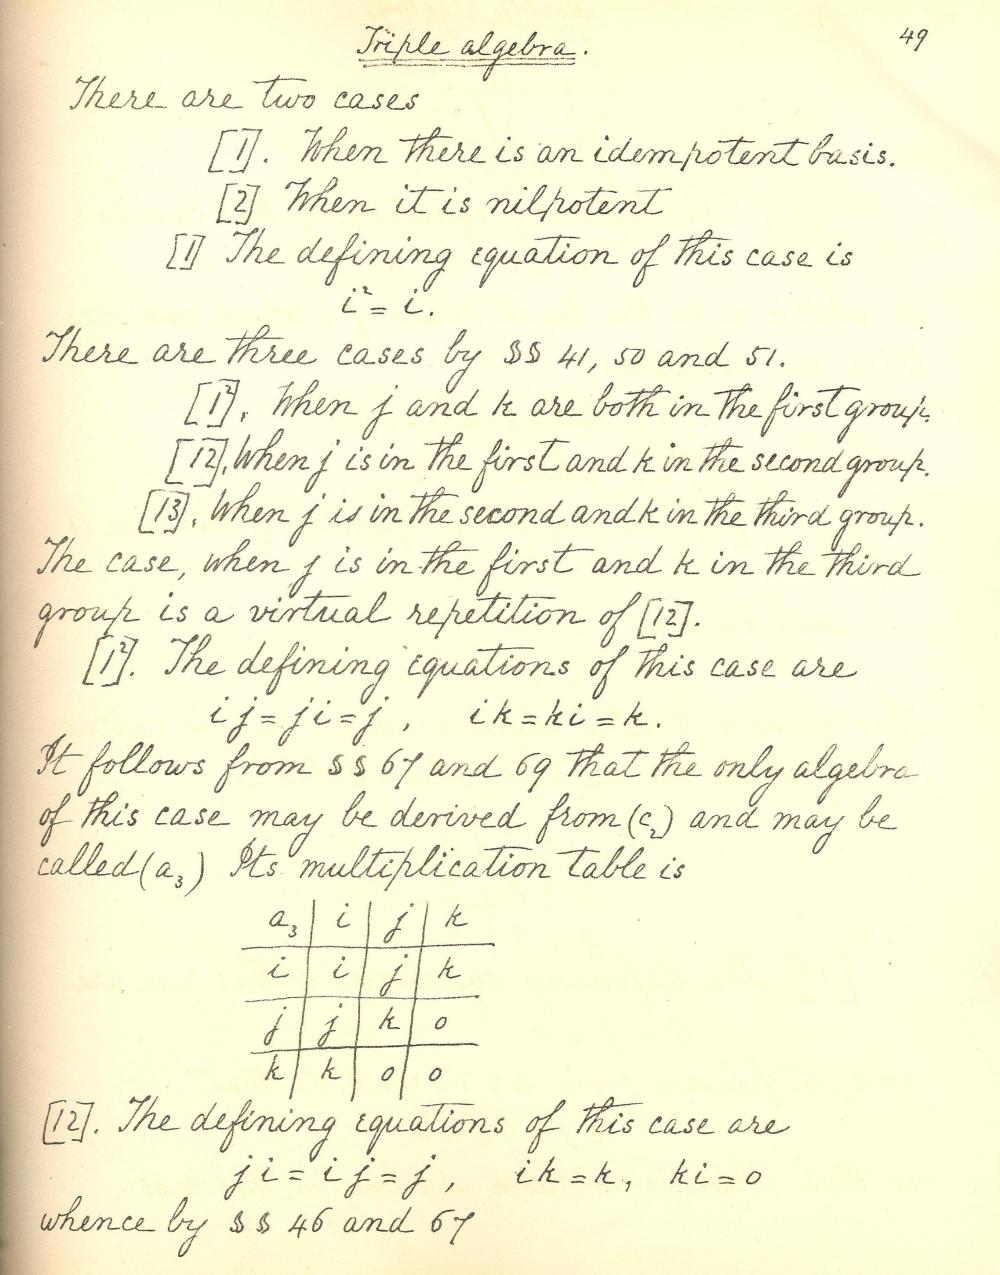 Triple algebra. 49
There are two cases
[1]. When there is an idempotent basis.
[2] When it is nilpotent
[1] The defining equation of this case is
i² = i.
There are three cases by §§ 41, 50 and 51.
[1²]. When j and k are both in the first group.
[12]. When j is in the first and k in the second group.
[13]. When j is in the second and k in the third group.
The case, when j is in the first and k in the third
group is a virtual repetition of [12].
[1²]. The defining equations of this case are
ij = ji = j, ik = ki = k.
It follows from §§ 67 and 69 that the only algebra
of this case may be derived from (c₂) and may be
called (a₃) Its multiplication table is
a₃ | i | j | k
i | i | j | k
j | j | k | 0
k | k | 0 | 0
[12]. The defining equations of this case are
ji = ij = j, ik = k, ki = 0
whence by §§ 46 and 67